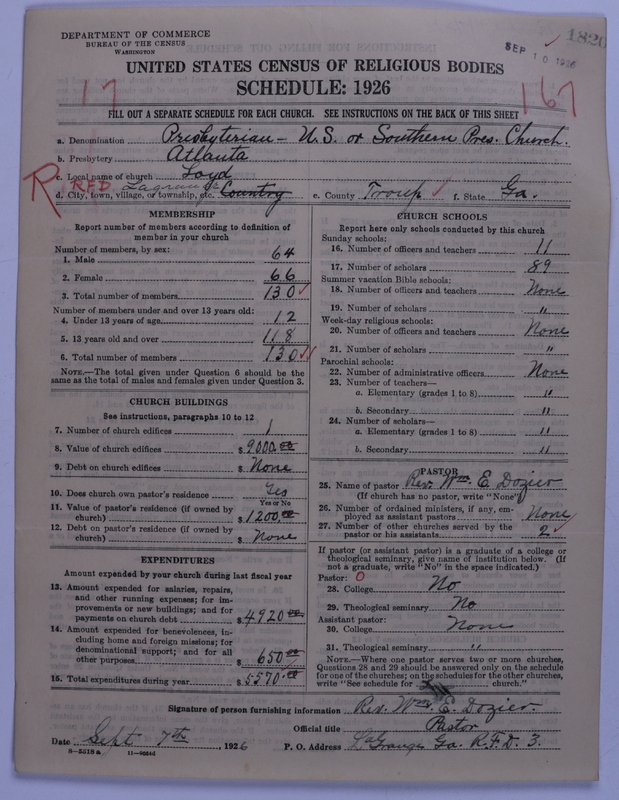 DEPARTMENT OF COMMERCE
BUREAU OF THE CENSUS
WASHINGTON
SEP 10 1926
1820
UNITED STATES CENSUS OF RELIGIOUS BODIES
SCHEDULE: 1926
17
167
FILL OUT A SEPARATE SCHEDULE FOR EACH CHURCH. SEE INSTRUCTIONS ON THE BACK OF THIS SHEET
a. Denomination Presbyterian - U.S. or Southern Pres. Church.
b. Presbytery Atlanta
c. Local name of church Loyd
R RFD Lagrange
d. City, town, village, or township, etc. Country e. County Troup f. State Ga.
MEMBERSHIP
Report number of members according to definition of member in your church
Number of members, by sex:
1. Male 64
2. Female 66
3. Total number of members 130
Number of members under and over 13 years old:
4. Under 13 years of age 12
5. 13 years old and over 118
6. Total number of members 130
NOTE.—The total given under Question 6 should be the same as the total of males and females given under Question 3.
CHURCH BUILDINGS
See instructions, paragraphs 10 to 12
7. Number of church edifices 1
8. Value of church edifices $9000.00
9. Debt on church edifices $ None
10. Does church own pastor's residence Yes
Yes or No
11. Value of pastor's residence (if owned by church) $1200.00
12. Debt on pastor's residence (if owned by church) $ None
EXPENDITURES
Amount expended by your church during last fiscal year
13. Amount expended for salaries, repairs, and other running expenses; for improvements or new buildings; and for payments on church debt $4920.00
14. Amount expended for benevolences, including home and foreign missions; for denominational support; and for all other purposes $650.00
15. Total expenditures during year $5570.00
CHURCH SCHOOLS
Report here only schools conducted by this church
Sunday schools:
16. Number of officers and teachers 11
17. Number of scholars 89
Summer vacation Bible schools:
18. Number of officers and teachers None
19. Number of scholars "
Week-day religious schools:
20. Number of officers and teachers None
21. Number of scholars "
Parochial schools:
22. Number of administrative officers None
23. Number of teachers—
a. Elementary (grades 1 to 8) "
b. Secondary "
24. Number of scholars—
a. Elementary (grades 1 to 8) "
b. Secondary "
PASTOR
25. Name of pastor Rev. Wm. E. Dozier
(If church has no pastor, write "None")
26. Number of ordained ministers, if any, employed as assistant pastors None
27. Number of other churches served by the pastor or his assistants 2
If pastor (or assistant pastor) is a graduate of a college or theological seminary, give name of institution below. (If not a graduate, write "No" in the space indicated.)
Pastor: 0
28. College No
29. Theological seminary No
Assistant pastor:
30. College None
31. Theological seminary "
NOTE.—Where one pastor serves two or more churches, Questions 28 and 29 should be answered only on the schedule for one of the churches; on the schedules for the other churches, write "See schedule for church."
Signature of person furnishing information Rev. Wm. E. Dozier.
Official title Pastor
Date Sept 7th, 1926 P. O. Address LaGrange Ga. R.F.D. 3.
8—5518a